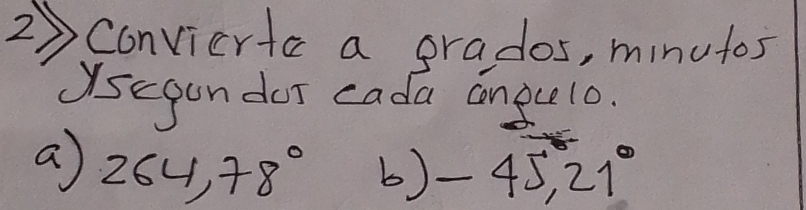 2>> Convierte a grados, minutos
y segundos cada ángulo.
a) 264,78° b) - 45,21°